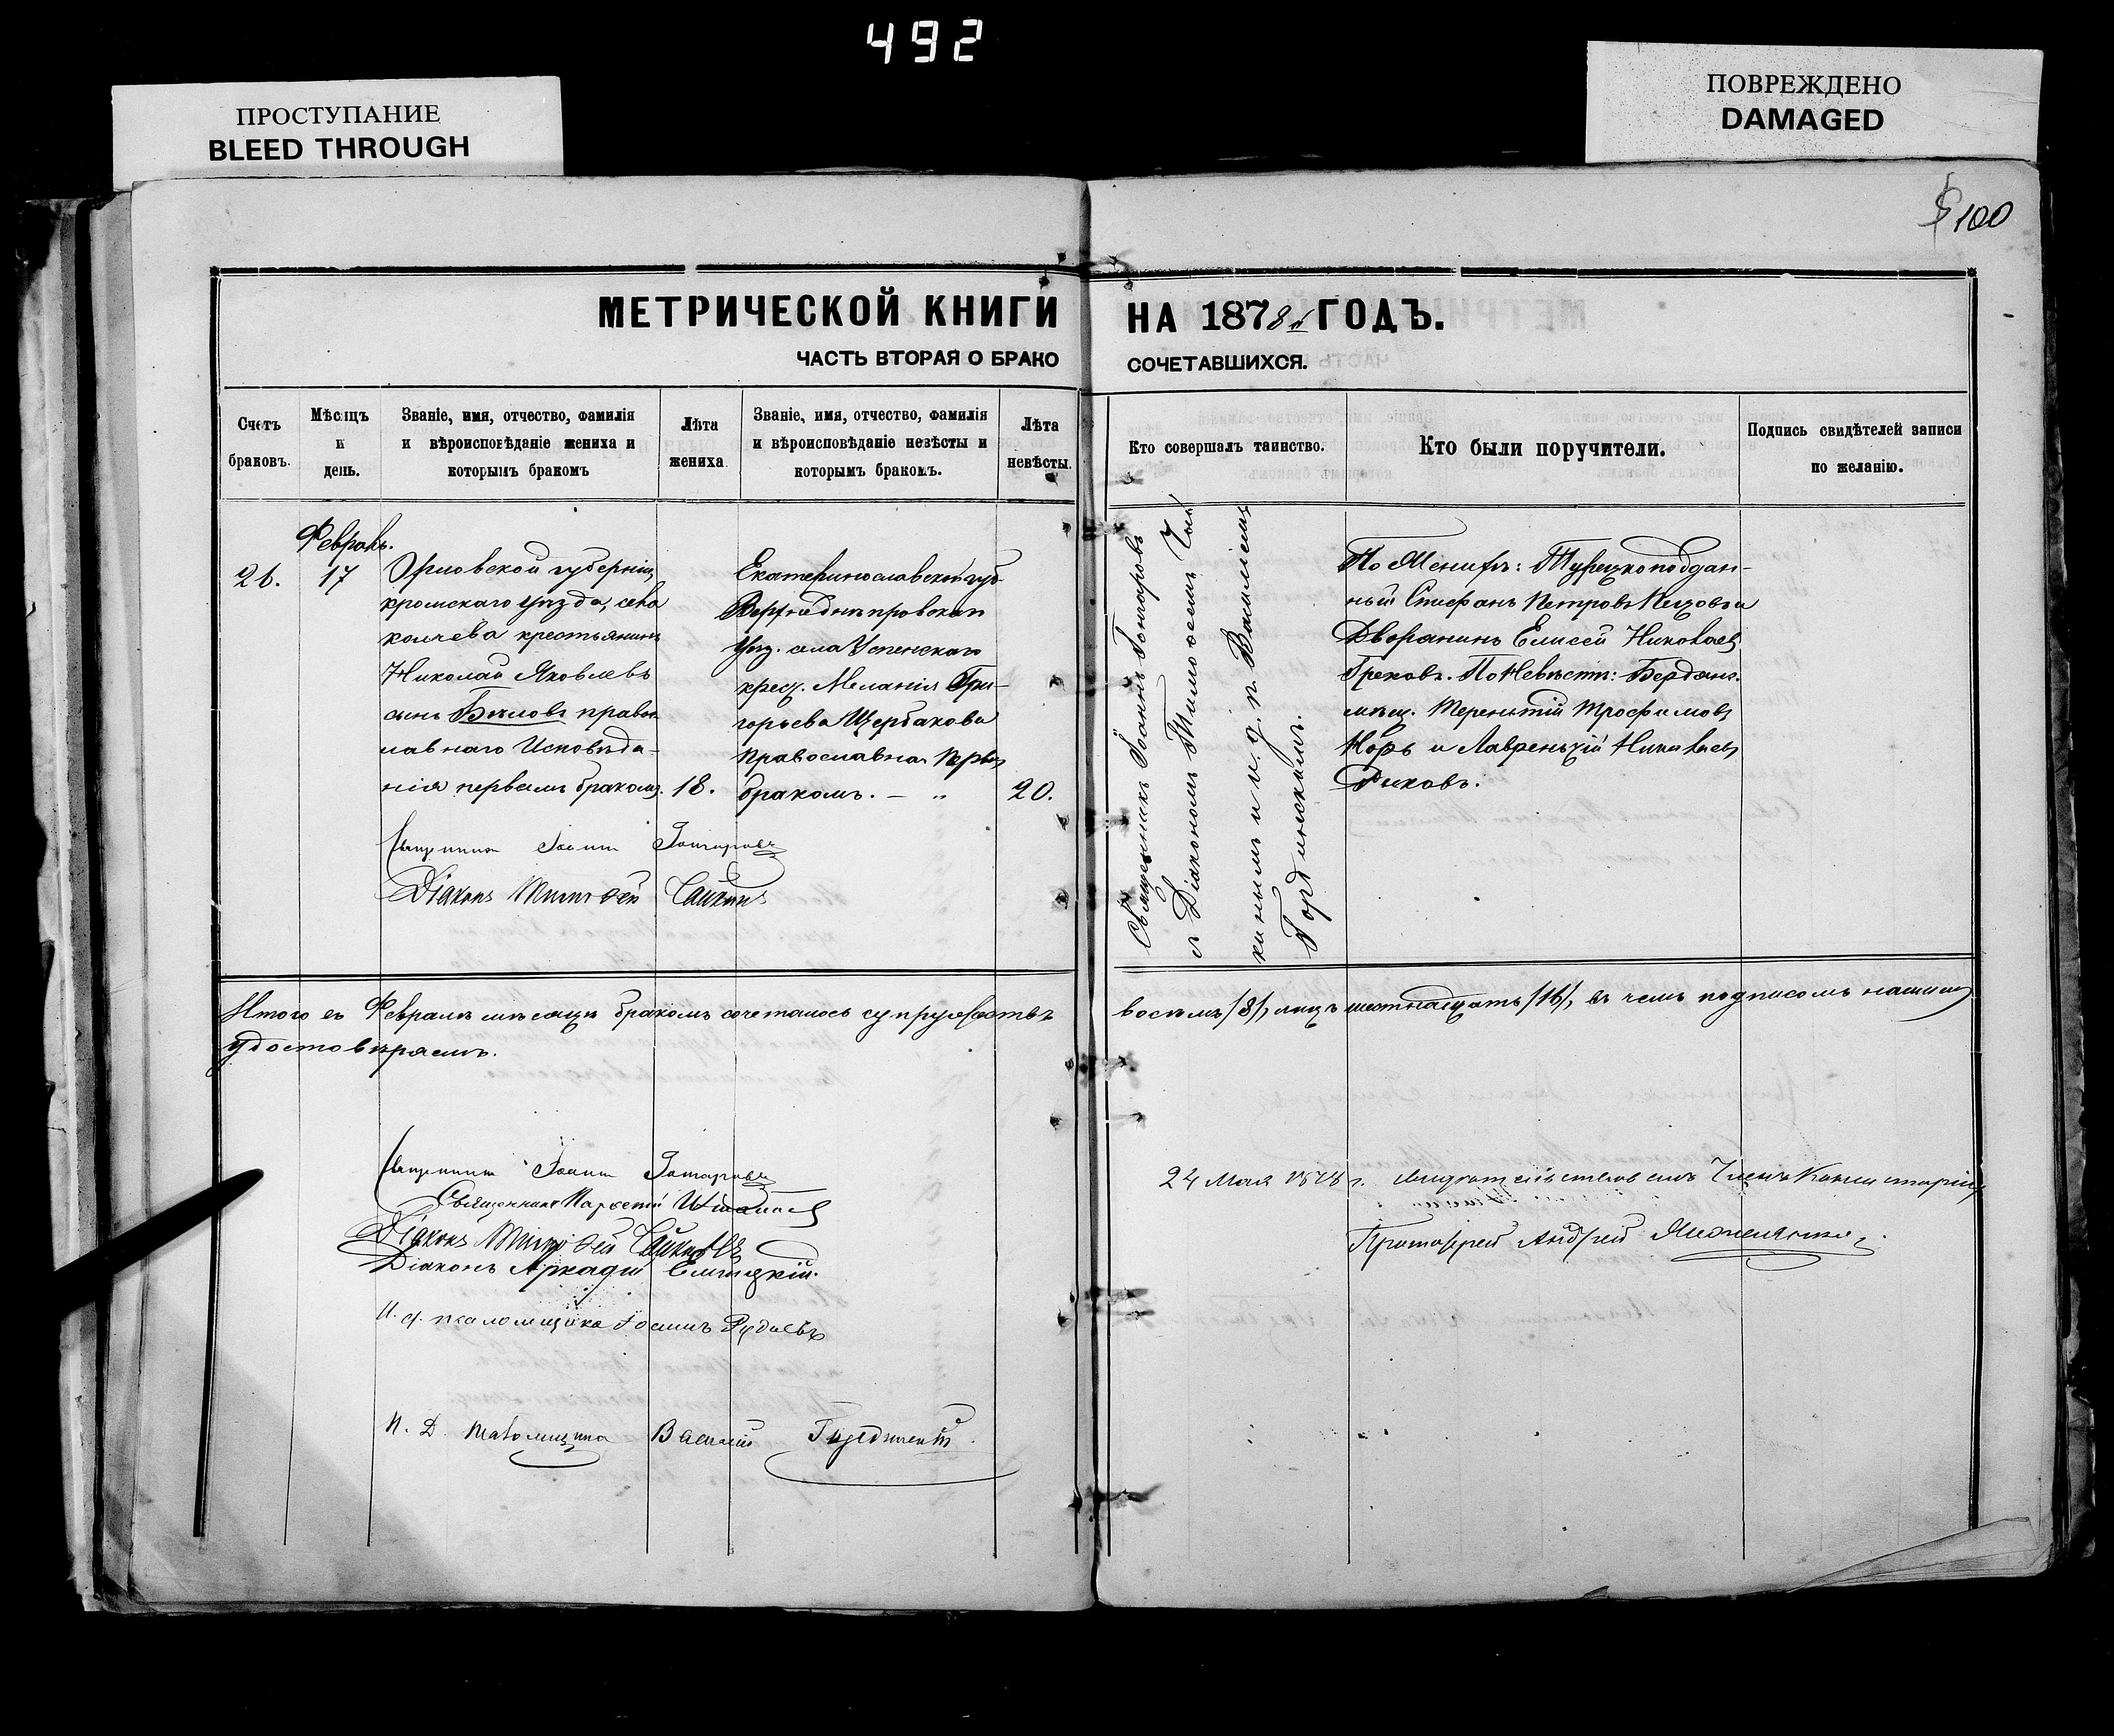 492
ПРОСТУПАНИЕ
BLEED THROUGH
ПОВРЕЖДЕНО
DAMAGED
100
МЕТРИЧЕСКОЙ КНИГИ НА 1878 ГОДЪ.
ЧАСТЬ ВТОРАЯ О БРАКО СОЧЕТАВШИХСЯ.
Счетъ
браковъ.
Мѣсяцъ
и
день.
Званіе, имя, отчество, фамилія
и вѣроисповѣданіе жениха и
которымъ бракомъ
Лѣта
жениха
Званіе, имя, отчество, фамилія
и вѣроисповѣданіе невѣсты и
которымъ бракомъ.
Лѣта
невѣсты.
Кто совершалъ таинство.
Кто были поручители.
Подпись свидѣтелей записи
по желанію.
26.
Февраль.
17
Орловской губерніи,
кромскаго уѣзда, села
крестьянинъ
Николай Яковлевъ
сынъ Бѣловъ правос
лавнаго Исповѣда-
нія первымъ бракомъ.
18.
Екатеринославской губ.
Верхнеднѣпровскаго
уѣз. села Успенскаго
крес. Меланія Гри-
горьева Щербакова
Православная Первы
бракомъ. — "
20.
Священникъ Іоаннъ Гончаровъ
Діаконъ Тимоѳей
Священникъ Іоаннъ Гончаровъ
съ Діакономъ Тимоѳеемъ
и и. д. п. Василіемъ
По Женихѣ: Турецкоподдан-
ный Стефанъ Петровъ и
Дворянинъ Елисей Николаевъ
Грековъ. По Невѣстѣ: Бердянс.
мѣщ. Терентій Трофимовъ
и Лаврентій Николаевъ
Рыковъ.
Итого въ Февралѣ мѣсяцѣ бракомъ сочеталось супружествъ
восемь /8/, лицъ шестнадцать /16/, въ чемъ подписомъ нашимъ
удостовѣряемъ.
Священникъ Іоаннъ Гончаровъ
Священникъ
Діаконъ Тимоѳей
Діаконъ Аркадій
И. д. псаломщика Іоаннъ
И. Д. псаломщика Василій
24 Мая 1878 г. свидѣтельствовалъ Членъ Консисторіи
Протоіерей Андрей